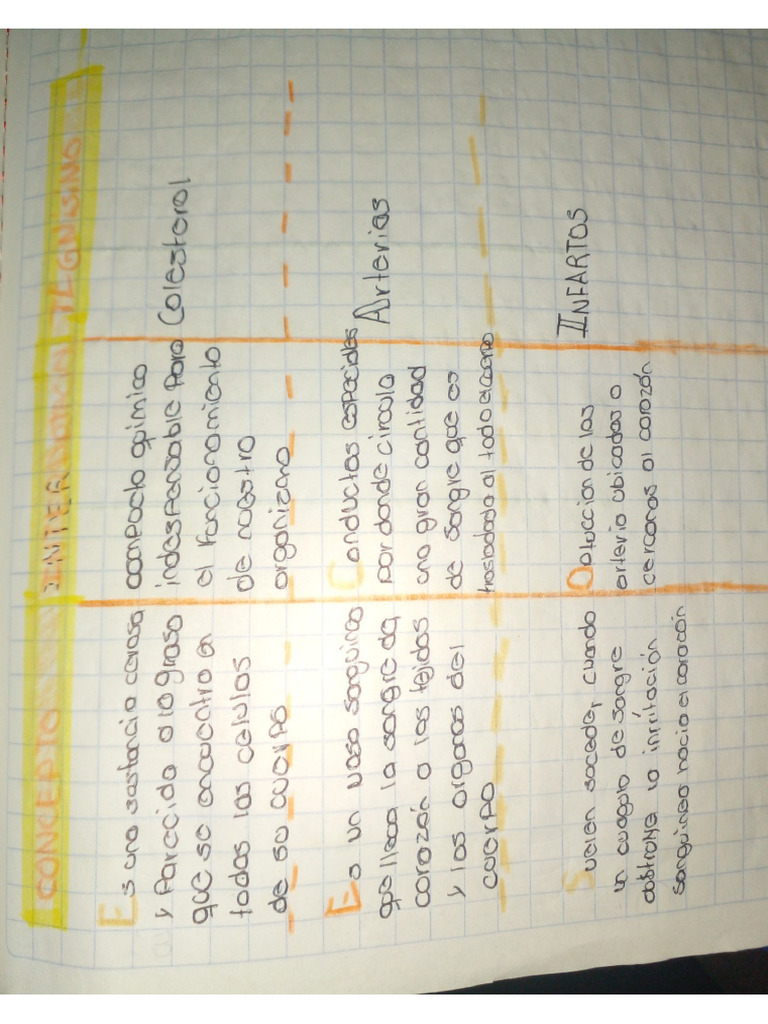 CONCEPTO
INTER
TECNISINO
Es una sustancia cerosa
y Parecida a la grasa
que se encuentra en
todas las celulas
de su cuerpo
compacto quimico
indespensable para
el Funcionamiento
de nuestro
organizmo
Colesterol
Es un Vaso sanguineo
que lleva la sangre del
corazón a los tejidos
y los organos del
cuerpo
Conductos espaciales
por donde circula
una gran cantidad
de sangre que es
trasladada al todo el cuerpo
Arterias
Suelen suceder, cuando
un cuagulo de sangre
obstruye la irritación
sanguinea hacia el corazón
Obtuccion de las
arteria ubicadas o
cercanas al corazón
INFARTOS